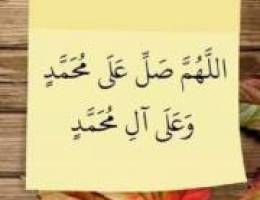 اللَّهُمَّ صَلِّ عَلَى مُحَمَّدٍ
وَعَلَى آلِ مُحَمَّدٍ